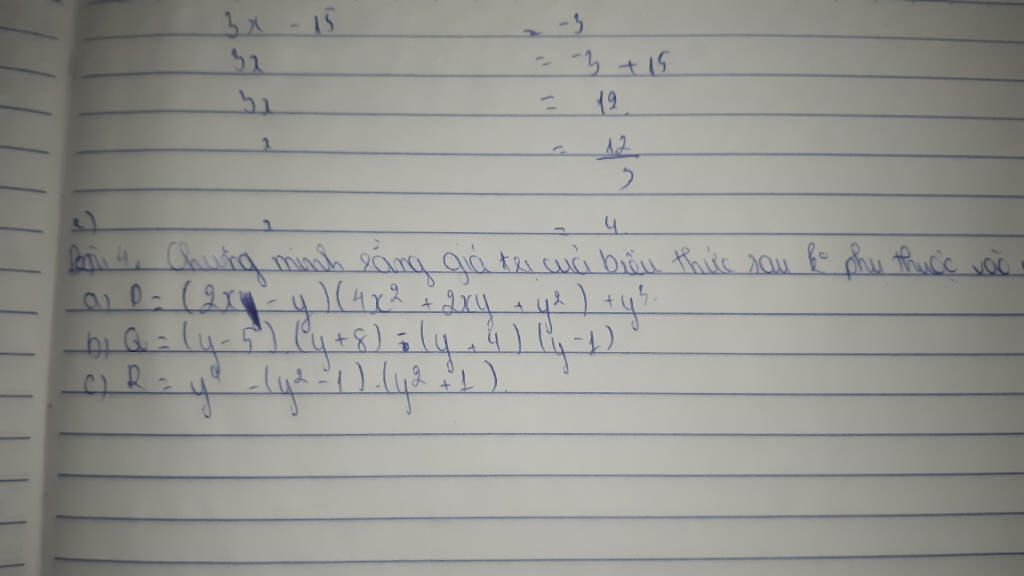 3x - 15 = -3
3x = -3 + 15
3x = 12
x = 12/3
e) x = 4
Bài 4. Chứng minh rằng giá trị của biểu thức sau ko phụ thuộc vào
a) P = (2x - y)(4x² + 2xy + y²) + y³
b) Q = (y - 5)(y + 8) - (y + 4)(y - 1)
c) R = y⁴ - (y² - 1).(y² + 1).